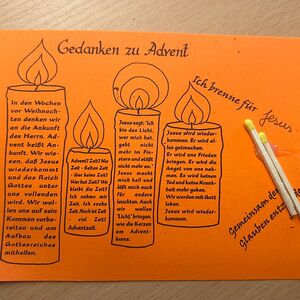 Gedanken zu Advent
In den Wochen
vor Weihnach-
ten denken wir
an die Ankunft
des Herrn. Ad-
vent heißt An-
kunft. Wir wis-
sen, daß Jesus
wiederkommt
und das Reich
Gottes unter
uns vollenden
wird. Wir wol-
len uns auf sein
Kommen vorbe-
reiten und am
Aufbau des
Gottesreiches
mithelfen.
Advent! Zeit? Nu
Zeit - Selten Zeit
- Gar keine Zeit?
Wer hat Zeit? Wo
bleibt die Zeit?
Ich nehme mir
Zeit. Ich suche
Zeit. Noch ist Zeit
- viel Zeit!
Adventzeit.
Jesus sagt: "Ich
bin das Licht,
wer mir
geht
nicht mehr im Fin-
stern und
stößt nicht
mehr an."
Jesus macht
mich hell und
läßt mich auch
für andere
leuchten.
Auch wir
wollen "Licht"
bringen, wie
die Kerzen am
Advent-
kranz.
Jesus wird wieder-
kommen. Er wird al-
les gutmachen.
Er wird uns Frieden
bringen. Er wird die
Angst von uns neh-
men. Es wird keinen
Tod und keine Krank-
heit mehr geben.
Wir werden mit Gott
leben.
Jesus wird wieder-
kommen.
Ich brenne für Jesus
Gemeinsam den
Glauben